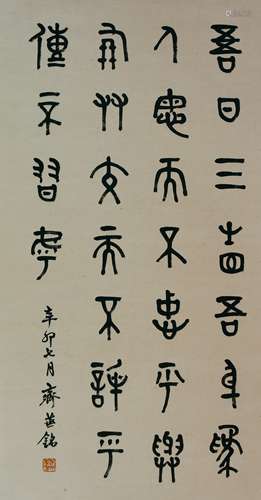 吾日三省吾身爲
人謀而不忠乎與
朋友交而不信乎
傳不習乎
辛卯七月齊燕銘